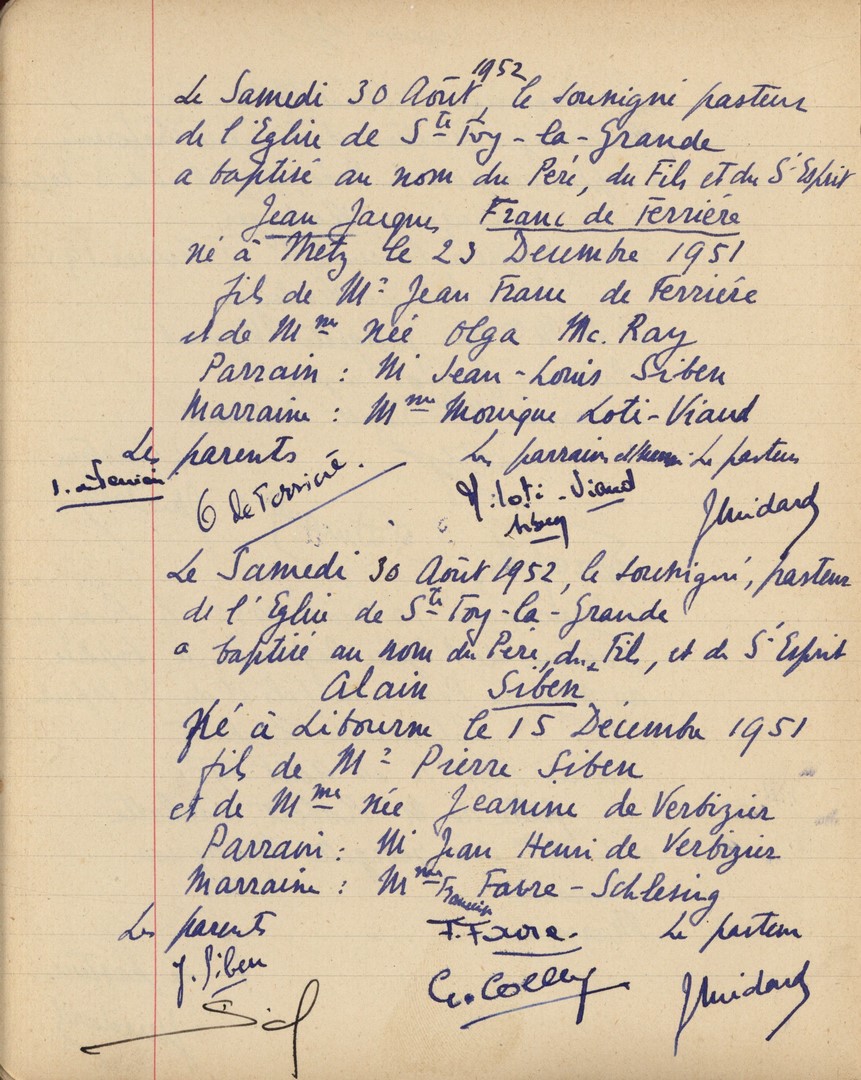 1952
Le Samedi 30 Août, le soussigné pasteur
de l'Eglise de Ste Foy-la-Grande
a baptisé au nom du Père, du Fils et du St Esprit
Jean Jacques Franc de Ferrière
né à Metz le 23 Décembre 1951
fils de Mr Jean Franc de Ferrière
et de Mme née Olga Mc. Ray
Parrain : Mr Jean-Louis Siben
Marraine : Mme Monique Loti-Viaud
Les parents Les parrain Le pasteur
de Ferrière. M. Loti-Viaud
Siben
Le Samedi 30 Août 1952, le soussigné, pasteur
de l'Eglise de Ste Foy-la-Grande
a baptisé au nom du Père, du Fils, et du St Esprit
Alain Siben
Né à Libourne le 15 Décembre 1951
fils de Mr Pierre Siben
et de Mme née Jeanine de Verbizier
Parrain : Mr Jean Henri de Verbizier
Marraine : Mme Francise Favre-Schlesing
Les parents F. Favre. Le pasteur
J. Siben